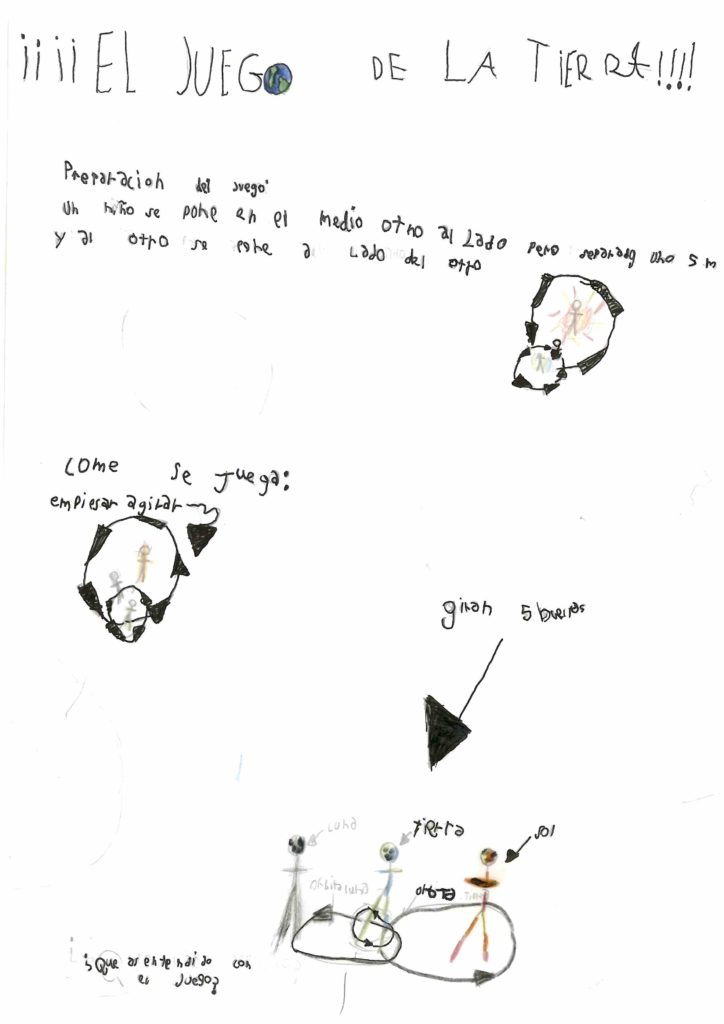 ¡¡¡¡EL JUEGO DE LA TIERRA!!!!
Preparacion del juego:
un niño se pone en el medio otro al Lado pero separado uno 5 m
y al otro se pone al Lado del otro
come se Juega:
empiesan a girar
giran 5 bueltas
Luna
tierra
sol
orbita
¿Que as entendido con
el Juego?